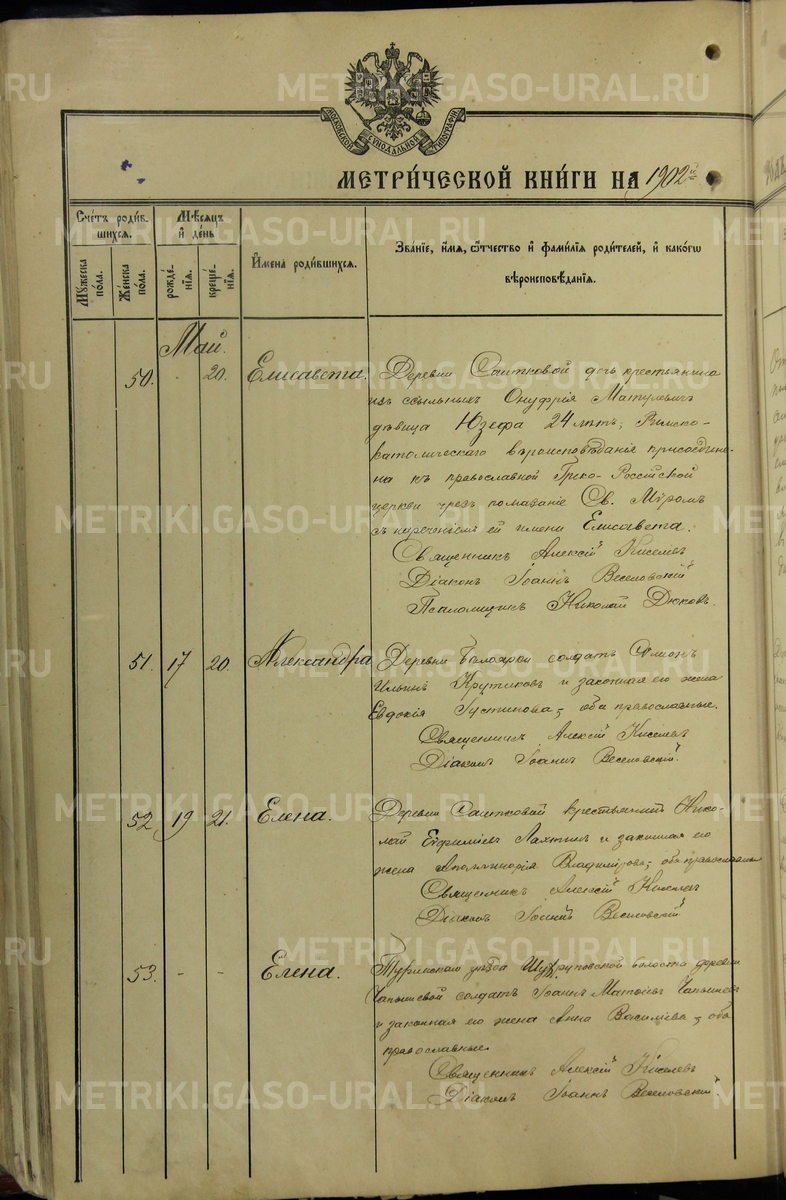 METRIKI.GASO-URAL.RU
МОСКОВСКОЙ СѴНОДАЛЬНОЙ ТИПОГРАФІИ
МЕТРИ́ЧЕСКОЙ КНИ́ГИ НА 1902 й
Счетъ роди́вшихся.
Мѣ́сяцъ и де́нь
Имена роди́вшихся.
Зва́ніе, и́мя, ѻ҆́тчество и҆ фами́лїѧ роди́телей, и҆ како́гѡ
вѣроисповѣ́данїѧ.
Му́жеска по́ла.
Же́нска по́ла.
рожде́нїѧ.
креще́нїѧ.
Май.
50. - 20. Елисавета. Деревни Саитковой дочь крестьянина
изъ ссыльныхъ Онуфрія Матулевичъ
дѣвица Юзефа 24 лѣтъ, Римско-
католическаго вѣроисповѣданія присоедине-
на къ православной Греко-Россійской
церкви чрезъ помазаніе Св. Мѵромъ
съ нареченіемъ ей имени Елисавета.
Священникъ Алексій Киселевъ
Діаконъ Іоаннъ Веселовскій
Псаломщикъ Николай Дюковъ.
51. 17 20. Александра Деревни солдатъ Симеонъ
Ильинъ Крутиковъ и законная его жена
Евдокія Густинова, оба православные.
Священникъ Алексій Киселевъ
Діаконъ Іоаннъ Веселовскій.
52 19 21. Елена. Деревни Саитковой крестьянинъ Нико-
лай Ефиміевъ Лахтинъ и законная его
жена Аполлинарія Владимірова, оба православные
Священникъ Алексій Киселевъ
Діаконъ Іоаннъ Веселовскій
53. - - Елена. Туринскаго уѣзда Шухруповской волости деревни
солдатъ Іоаннъ Матѳіевъ
и законная его жена Анна Василіева, оба
православные.
Священникъ Алексій Киселевъ
Діаконъ Іоаннъ Веселовскій.